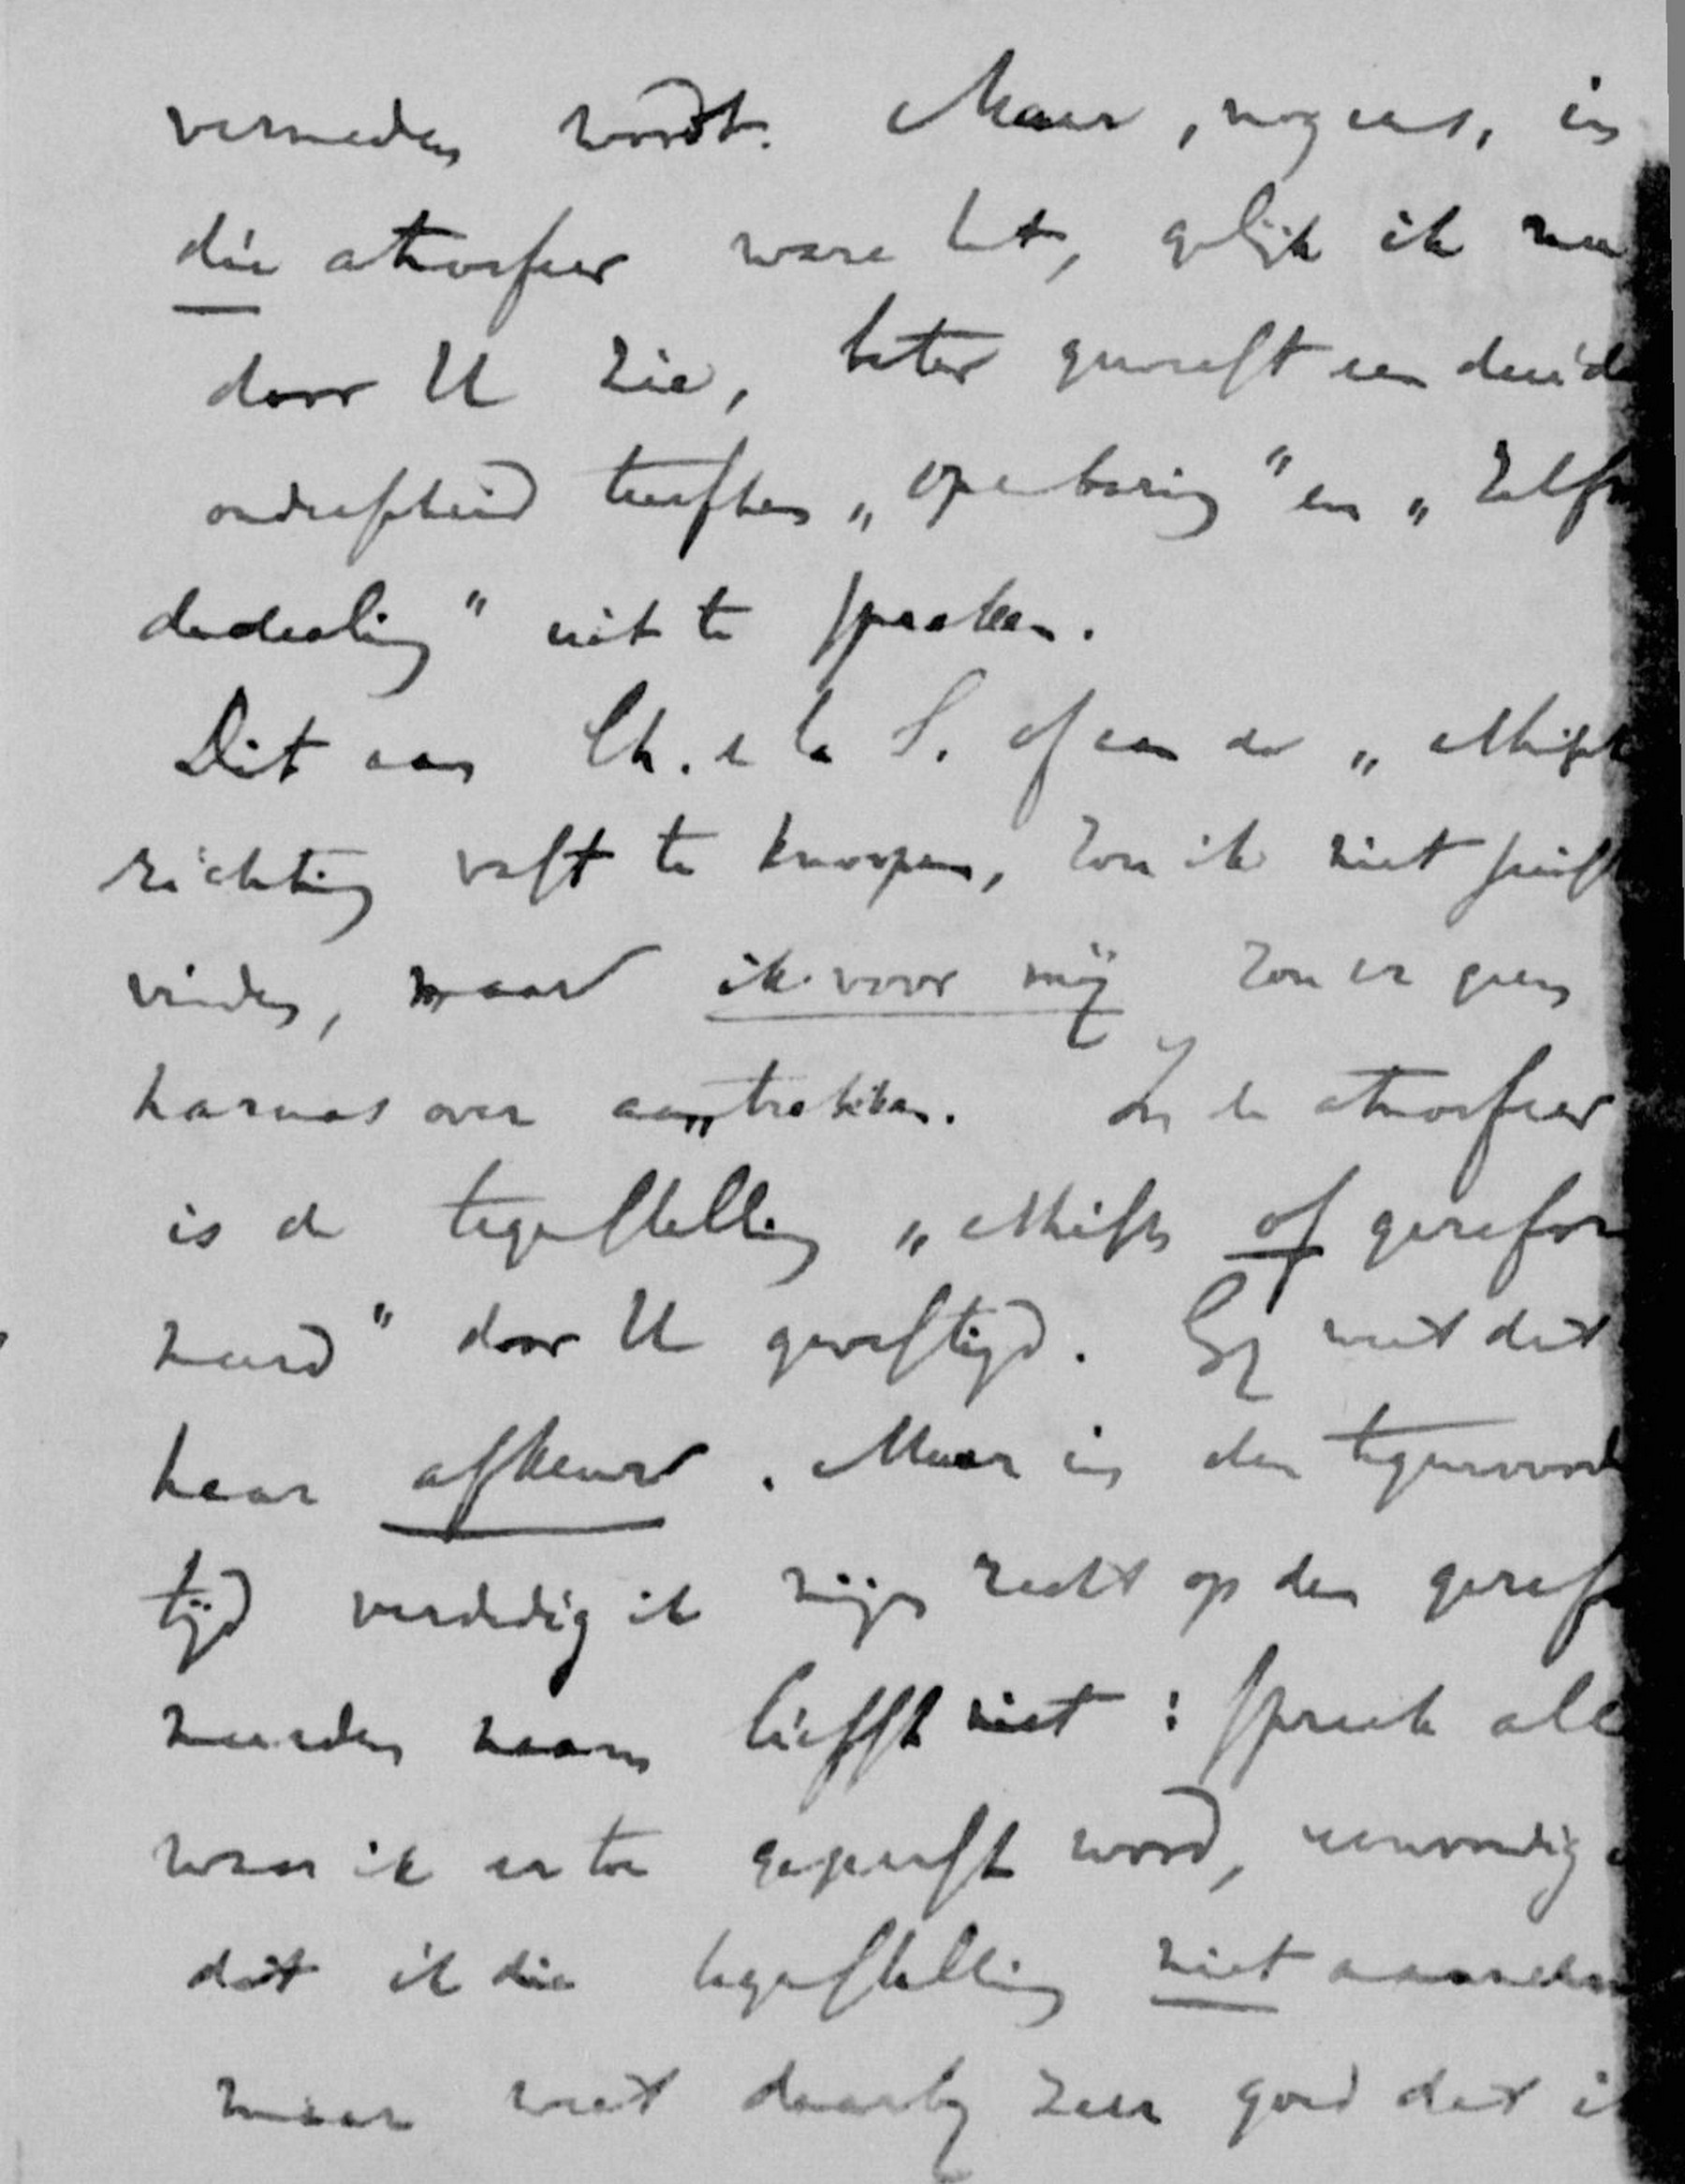 vermeden wordt. Maar, nog eens, in
die atmosfeer ware het, gelijk ik nu
door U zie, beter geweest een duide
onderscheid tusschen „openbaring” en „Zelfm
dedeeling” uit te spreken.
Dit aan Ch. d. la S. of aan de „ethische
richting vast te knoopen, zou ik niet juist
vinden, maar ik voor mij zou er geen
harnas over aantrekken. In de atmosfeer
is de tegenstelling „ethisch of gerefor
meerd” door U gevestigd. Gij weet dat
haar afkeur. Maar in den tegenwoord
tijd verdedig ik mijn recht op den gerefor
meerden naam liefst niet: spreek alleen
waar ik er toe geperst word, eenvoudig
dat ik die tegenstelling niet aanneem
maar weet daarbij zeer goed dat ik